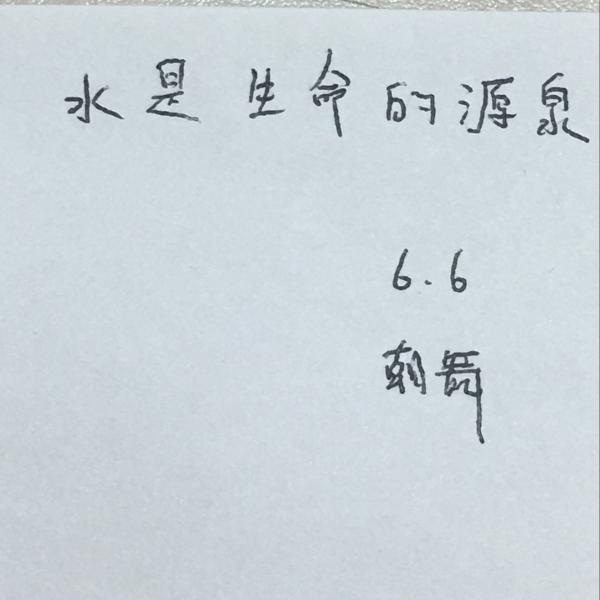 水是生命的源泉
6.6
朝舞